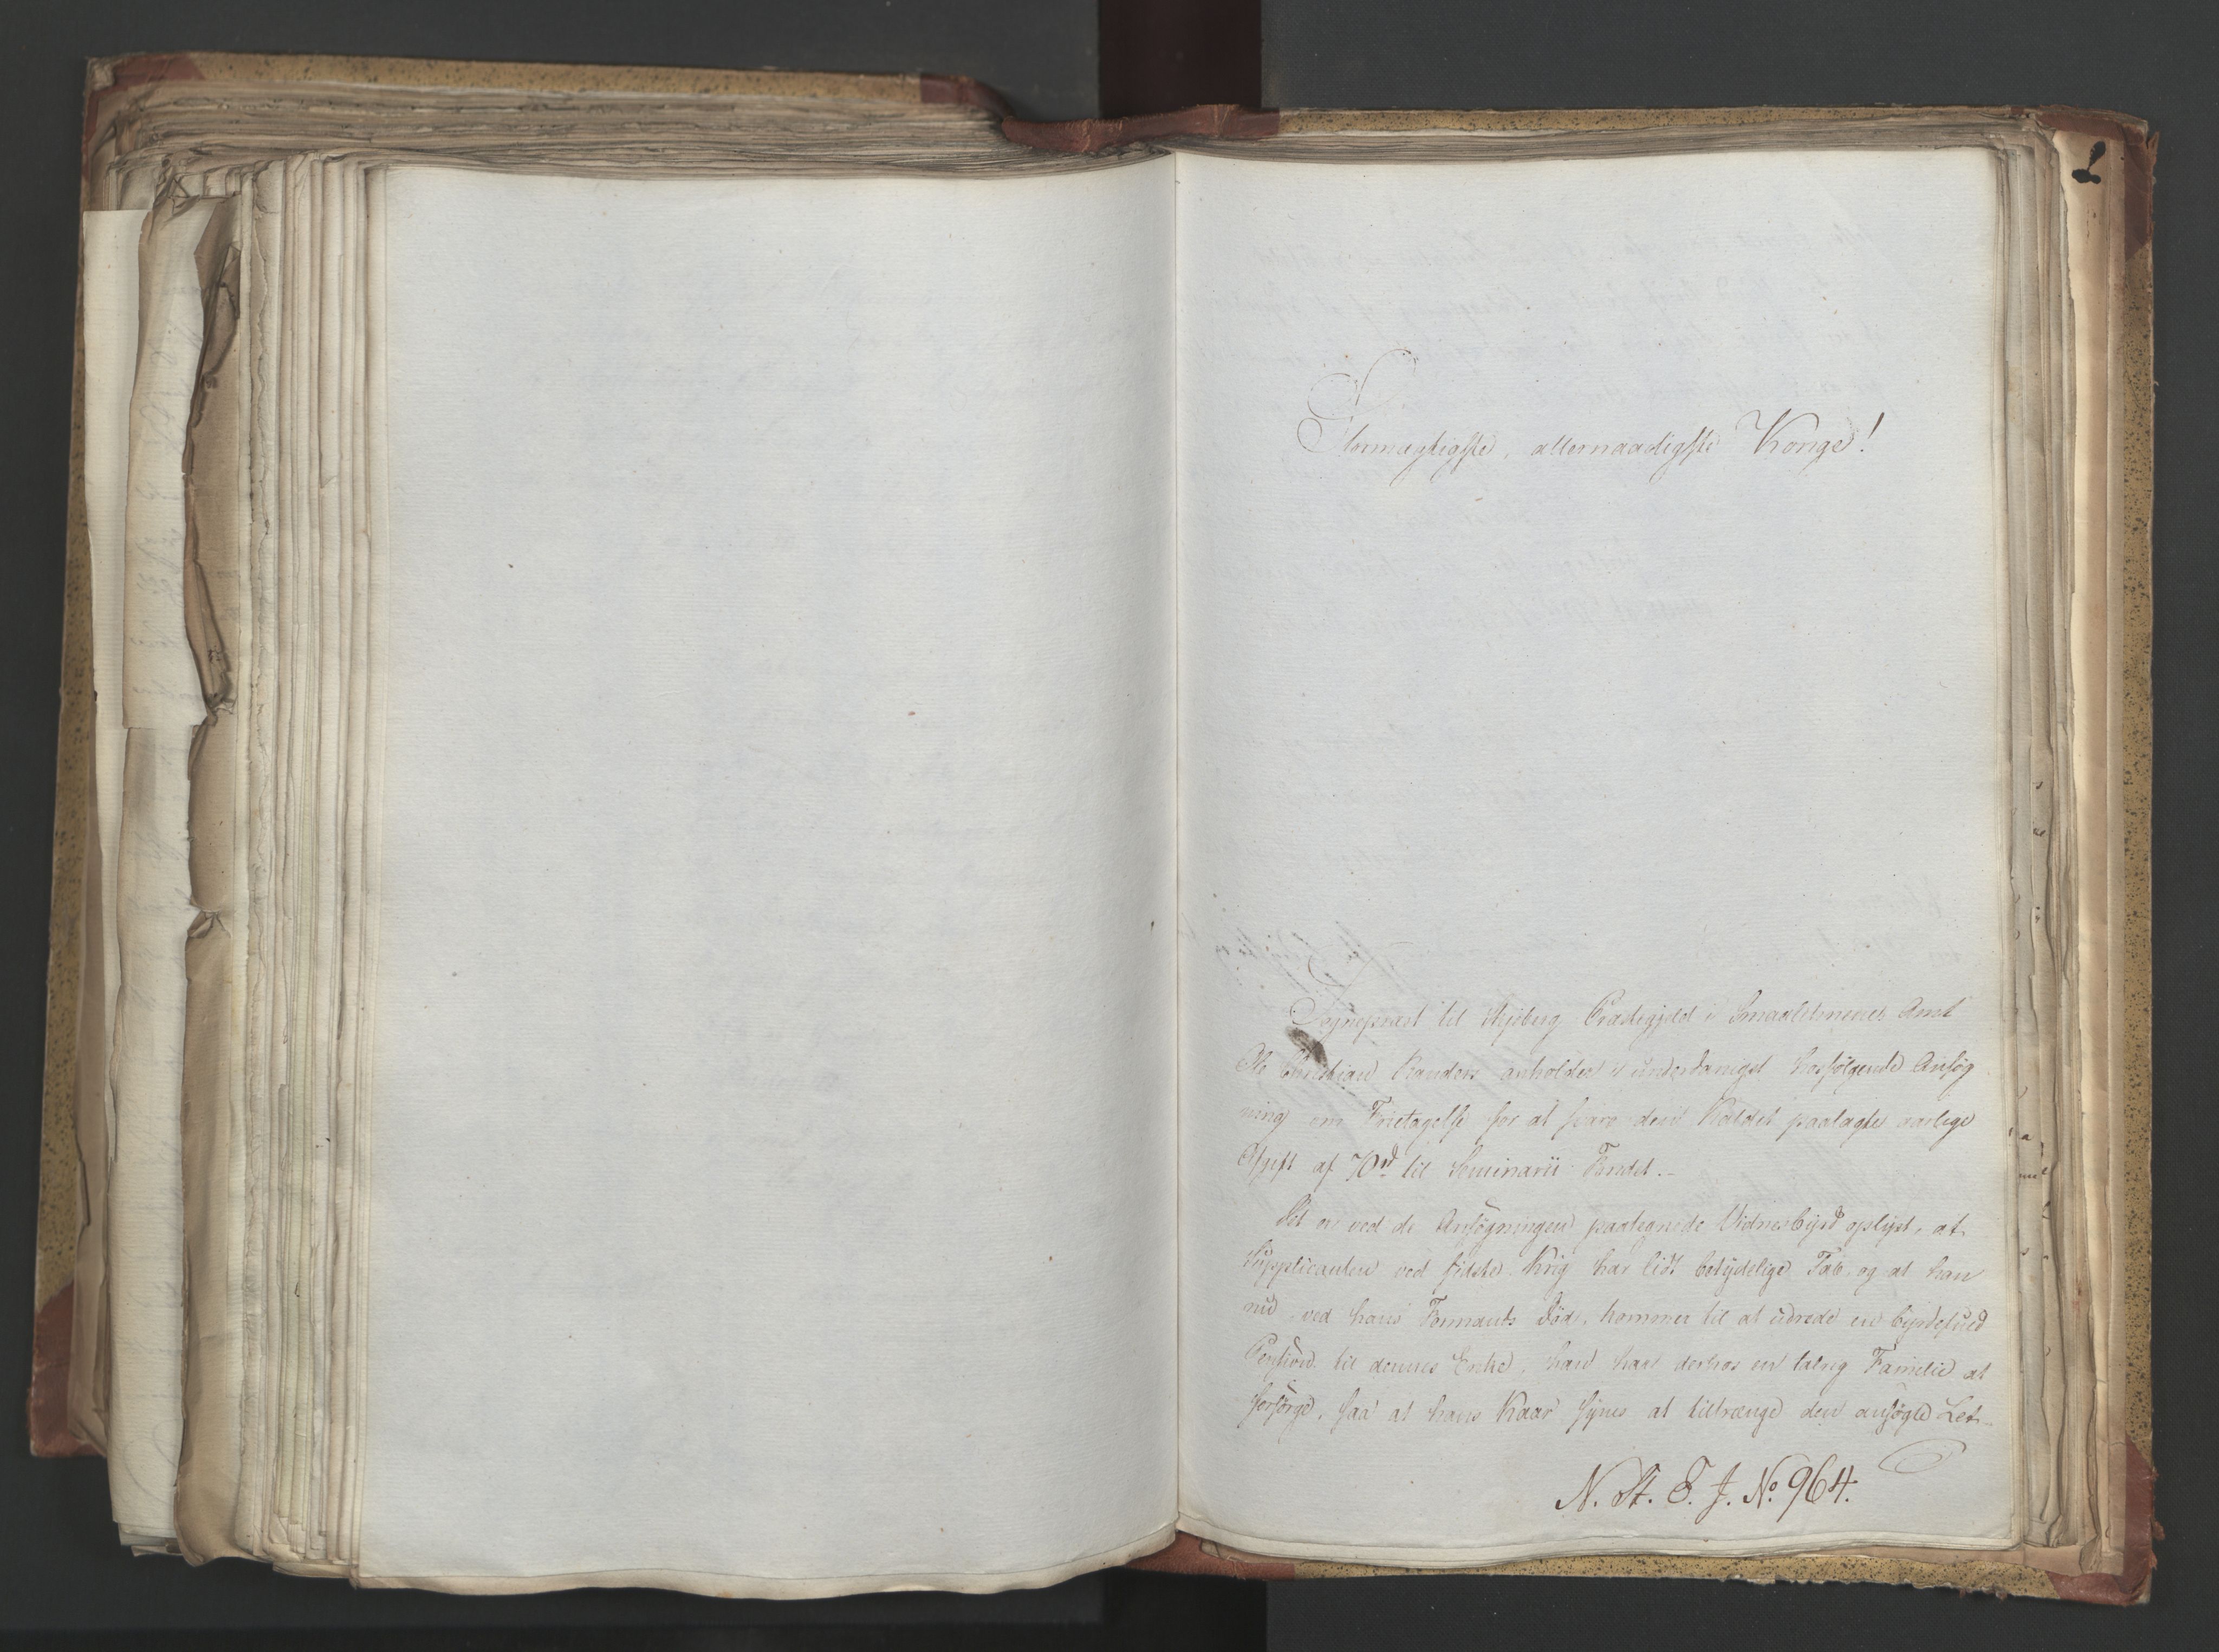 Stormægtigste, allernaadigste Konge!
Sognepræst til Skjeberg Præstegjeld i Smaalehnenes Amt
Ole Christian Randers anholder i underdanigst hosfølgende Ansøg
ning om Fritagelse for at svare den Kaldet paalagte aarlige
Afgift af 70 rd til Seminarii Fondet.-
Det er ved de Ansøgningen paategnede Vidnesbyrd oplyst, at
Supplicanten ved sidste Krig har lidt betydelige Tab, og at han
nu, ved hans Formands Død, kommer til at udrede en byrdefuld
Pension til dennes Enke, han har derhos en talrig Familie at
forsørge, saa at hans Kaar synes at tiltrænge den ansøgte Let-
N. St. E. J. No. 964.